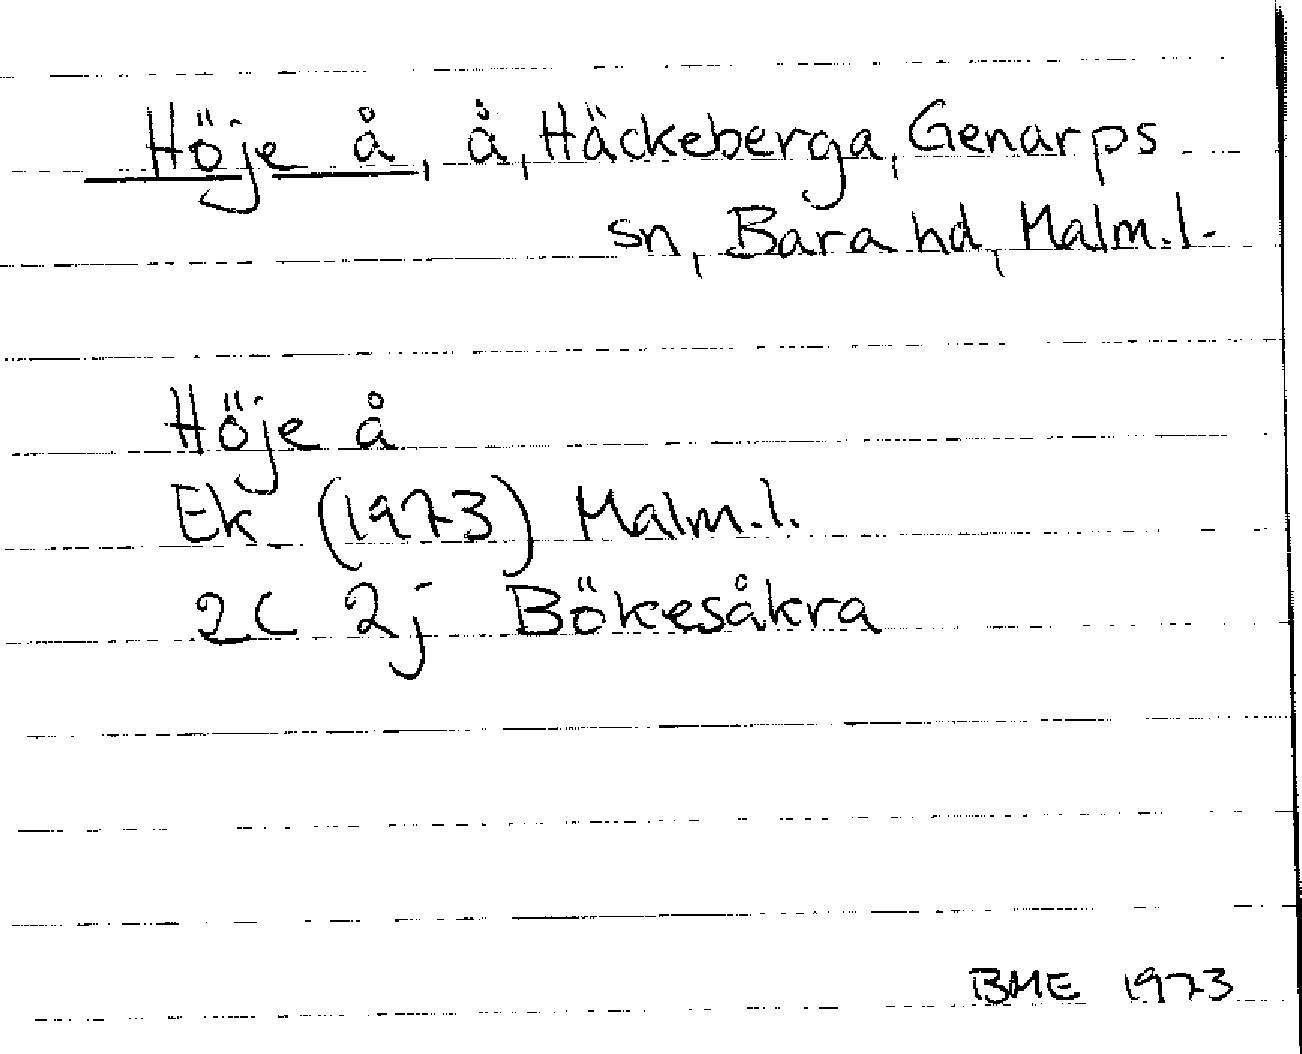 Höje å, å, Häckeberga, Genarps
sn, Bara hd, Malm.l.
Höje å
Ek (1973) Malm.l.
2C 2j Bökesåkra
BME 1973